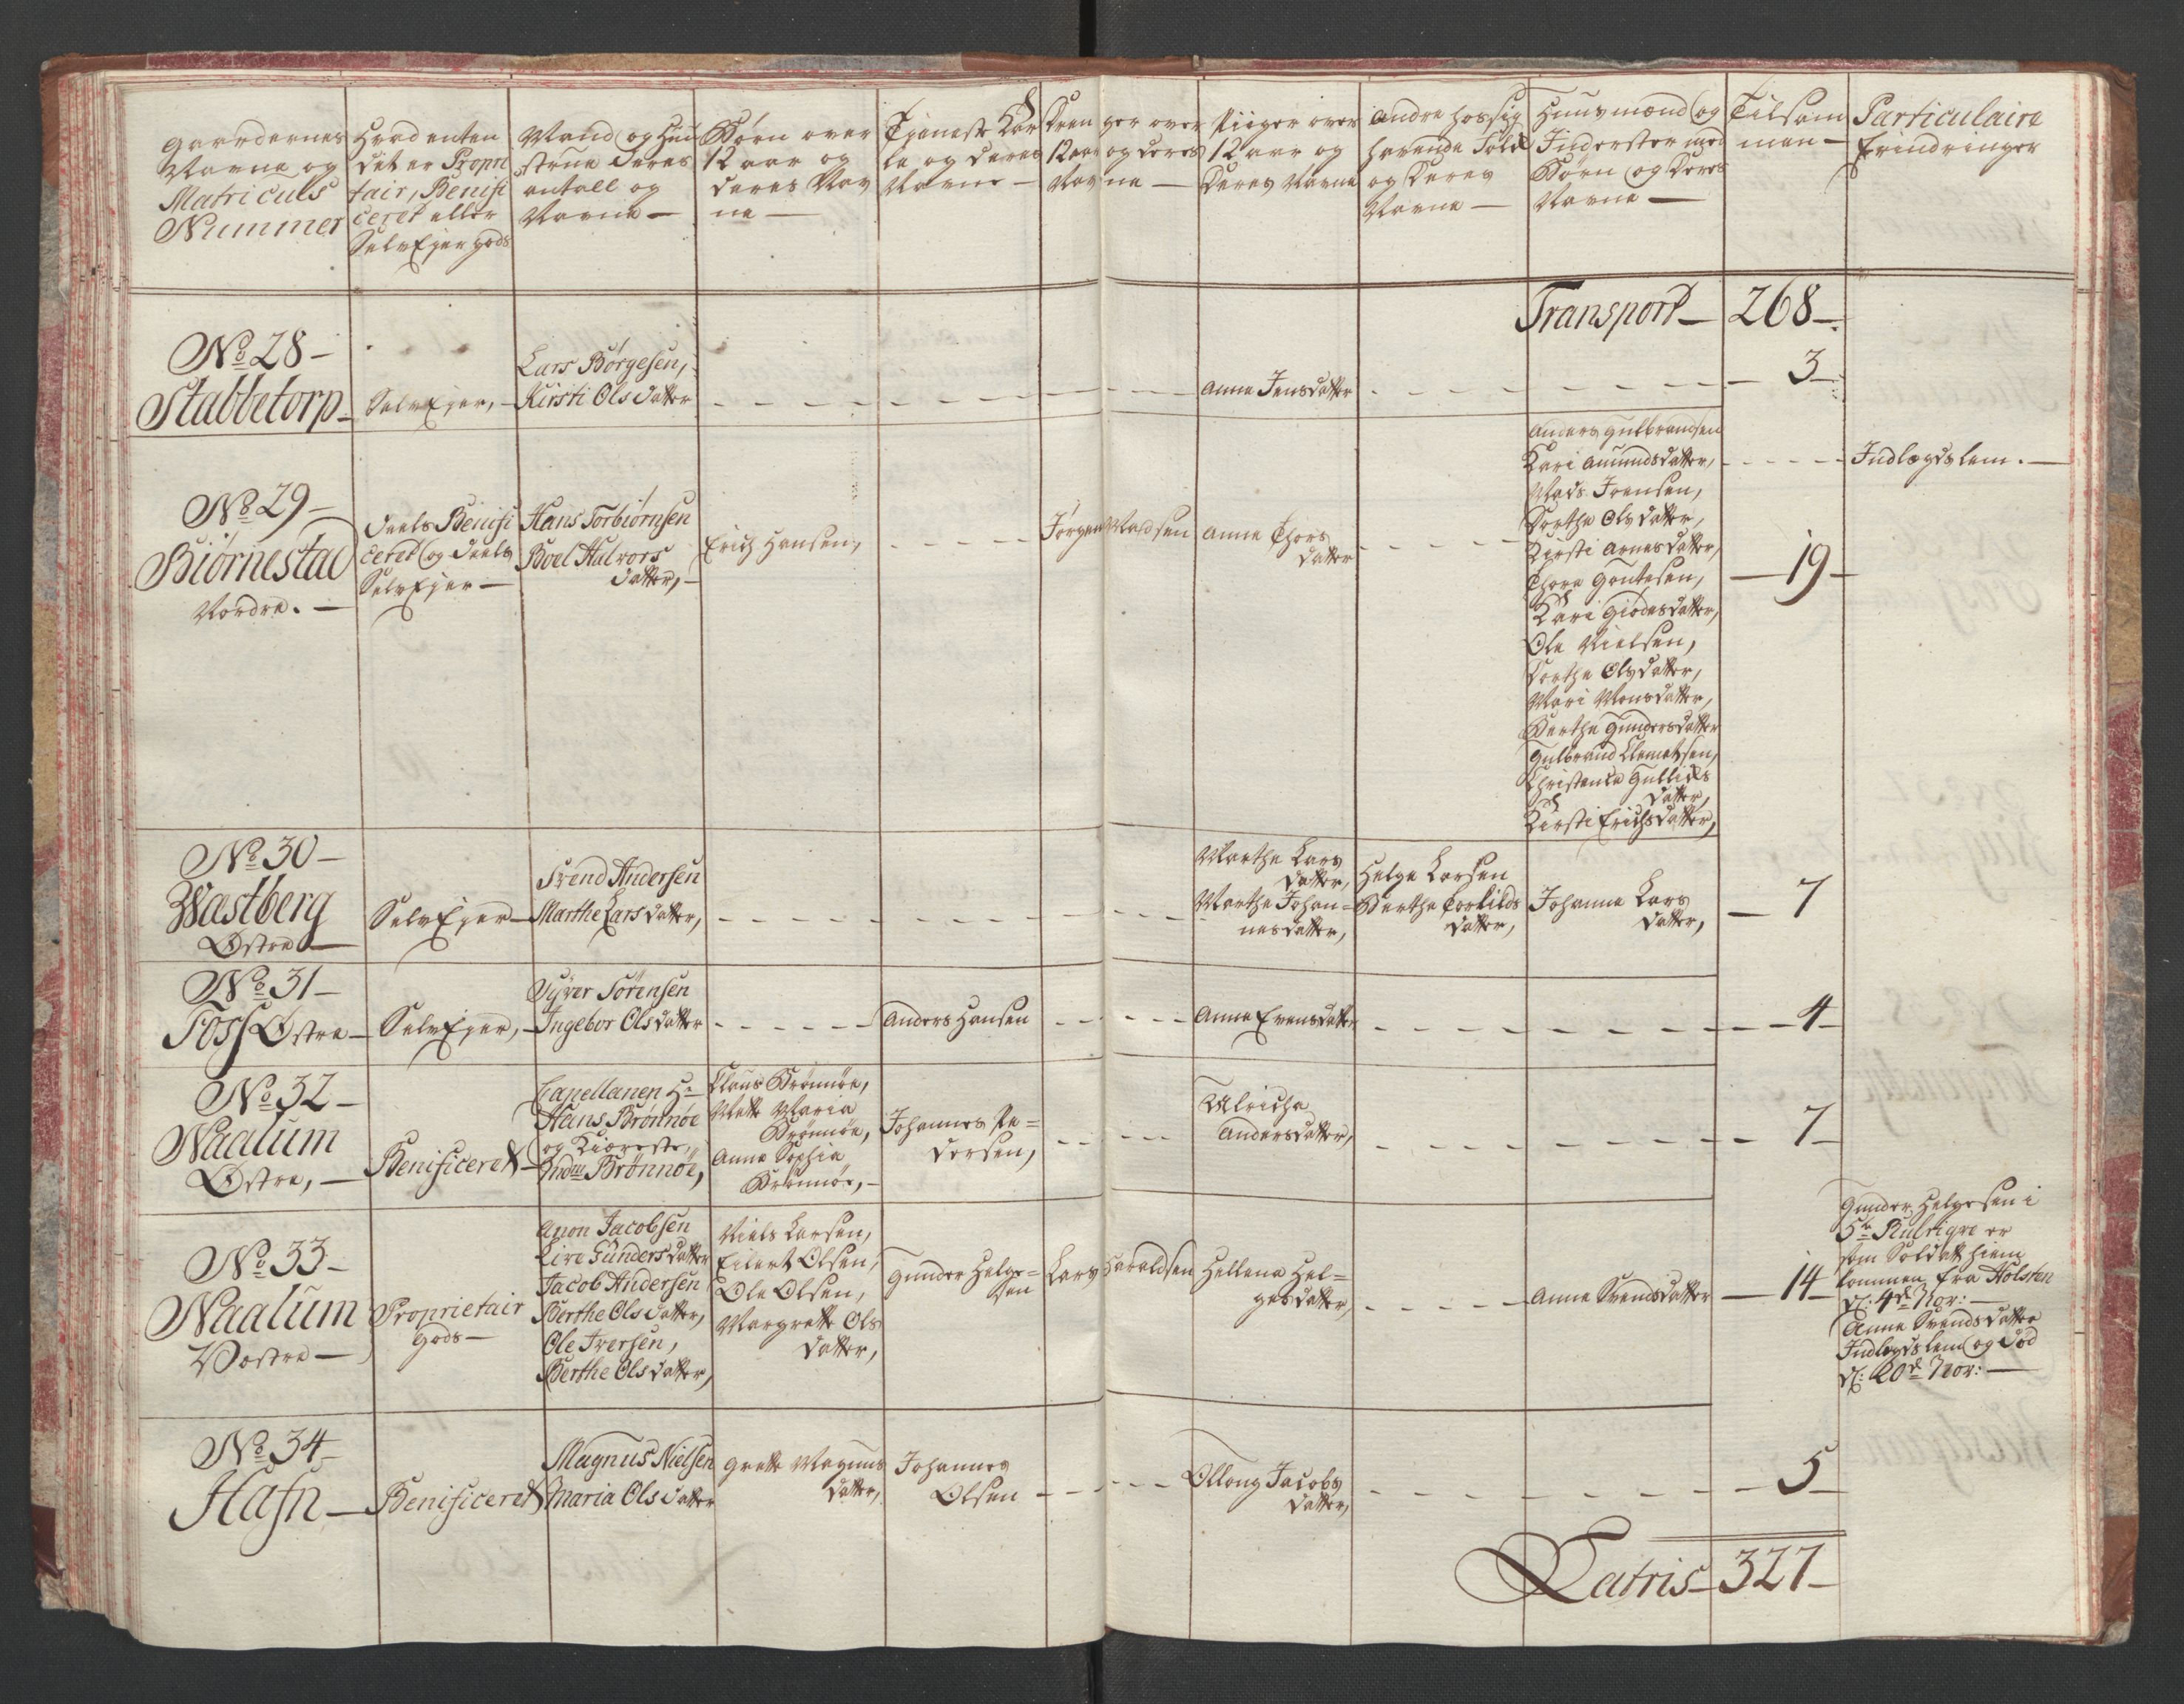 Gaardernes
Navne og
Matriculs
Nummer
Hvad enten
det er Propri
tair, Benifi
ceret eller
SelvEyer gods
Mand og Hu
struer deres
antall og
Navne —
Børn over
12 aar og
deres Nav
ne —
Tjeneste Kar
le og deres
Navne —
Drenger over
12 aar og deres
Navne —
Piiger over
12 aar og
deres Navne
Andre hos sig
havende Folk
og deres
Navne —
Huusmænd og
Inderster med
Børn og deres
Navne —
Tilsam
men —
Particulaire
Erindringer
Transport — 268 —
No 28 —
Stabbetorp —
SelvEyer, —
Lars Børgesen,
Kirsti Olsdatter
Anne Jensdatter
3 —
No 29 —
Biørnestad
Nordre. —
deels Benifi
ceret og deels
SelvEyer —
Hans Torbiørnsen
Boel Halvors
datter, —
Erich Hansen,
Jørgen Madsen
Anne Thors
datter
Anders Gulbrandsen
Kari Amundsdatter,
Mads Joensen,
Dorthe Olsdatter,
Kirsti Arnesdatter,
Thore
Kari
Ole Nielsen,
Dorthe Olsdatter,
Mari Monsdatter,
Berthe Gundersdatter
Gulbrand Clemetsen,
Christence Gulliks
datter,
Kirsti Erichsdatter,
— 19 —
Indlægdslem. —
No 30 —
Wastberg
Østre —
SelvEyer —
Svend Andersen
Marthe Larsdatter,
Marthe Lars
datter,
Marthe Johan=
nesdatter,
Helge Larsen
Berthe Torkilds
datter,
Johanne Lars
datter,
— 7
No 31 —
Foss Østre —
SelvEyer, —
Syver Sørensen
Ingebor Olsdatter
Anders Hansen
Anne Evensdatter
4 —
No 32 —
Naalum
Østre, —
Benificeret —
Capellanen Hr
Hans Brønnøe
og Kiæreste,
Brønnøe,
Claus Brønnøe,
Mette Maria
Brønnøe,
Anne Sophia
Brønnøe, —
Johannes Pe=
dersen,
Ulricha
Andersdatter,
7 —
No 33 —
Naalum
Vestre —
Proprietair
Gods —
Amon Jacobsen
Live Gundersdatter
Jacob Andersen
Berthe Olsdatter,
Ole Iversen,
Berthe Olsdatter,
Niels Larsen,
Eilert Olsen,
Ole Olsen,
Margrette Ols
datter,
Gunder Helge=
sen
Lars Haraldsen
Hellena Hel=
gesdatter,
Anne Svendsdatter
— 14 —
Gunder Helgesen i
5te Rubrique er
som Soldatt hiem
kommen fra Holsten
d: 4de Nov: —
Anne Svendsdatter
Indlægdslem og død
d: 20de Nov: —
No 34 —
Hafn —
Benificeret
Magnus Nielsen
Maria Olsdatter
Grette Magnus
datter,
Johannes
Olsen
Ollong Jacobs
datter,
5 —
Latris — 327 —